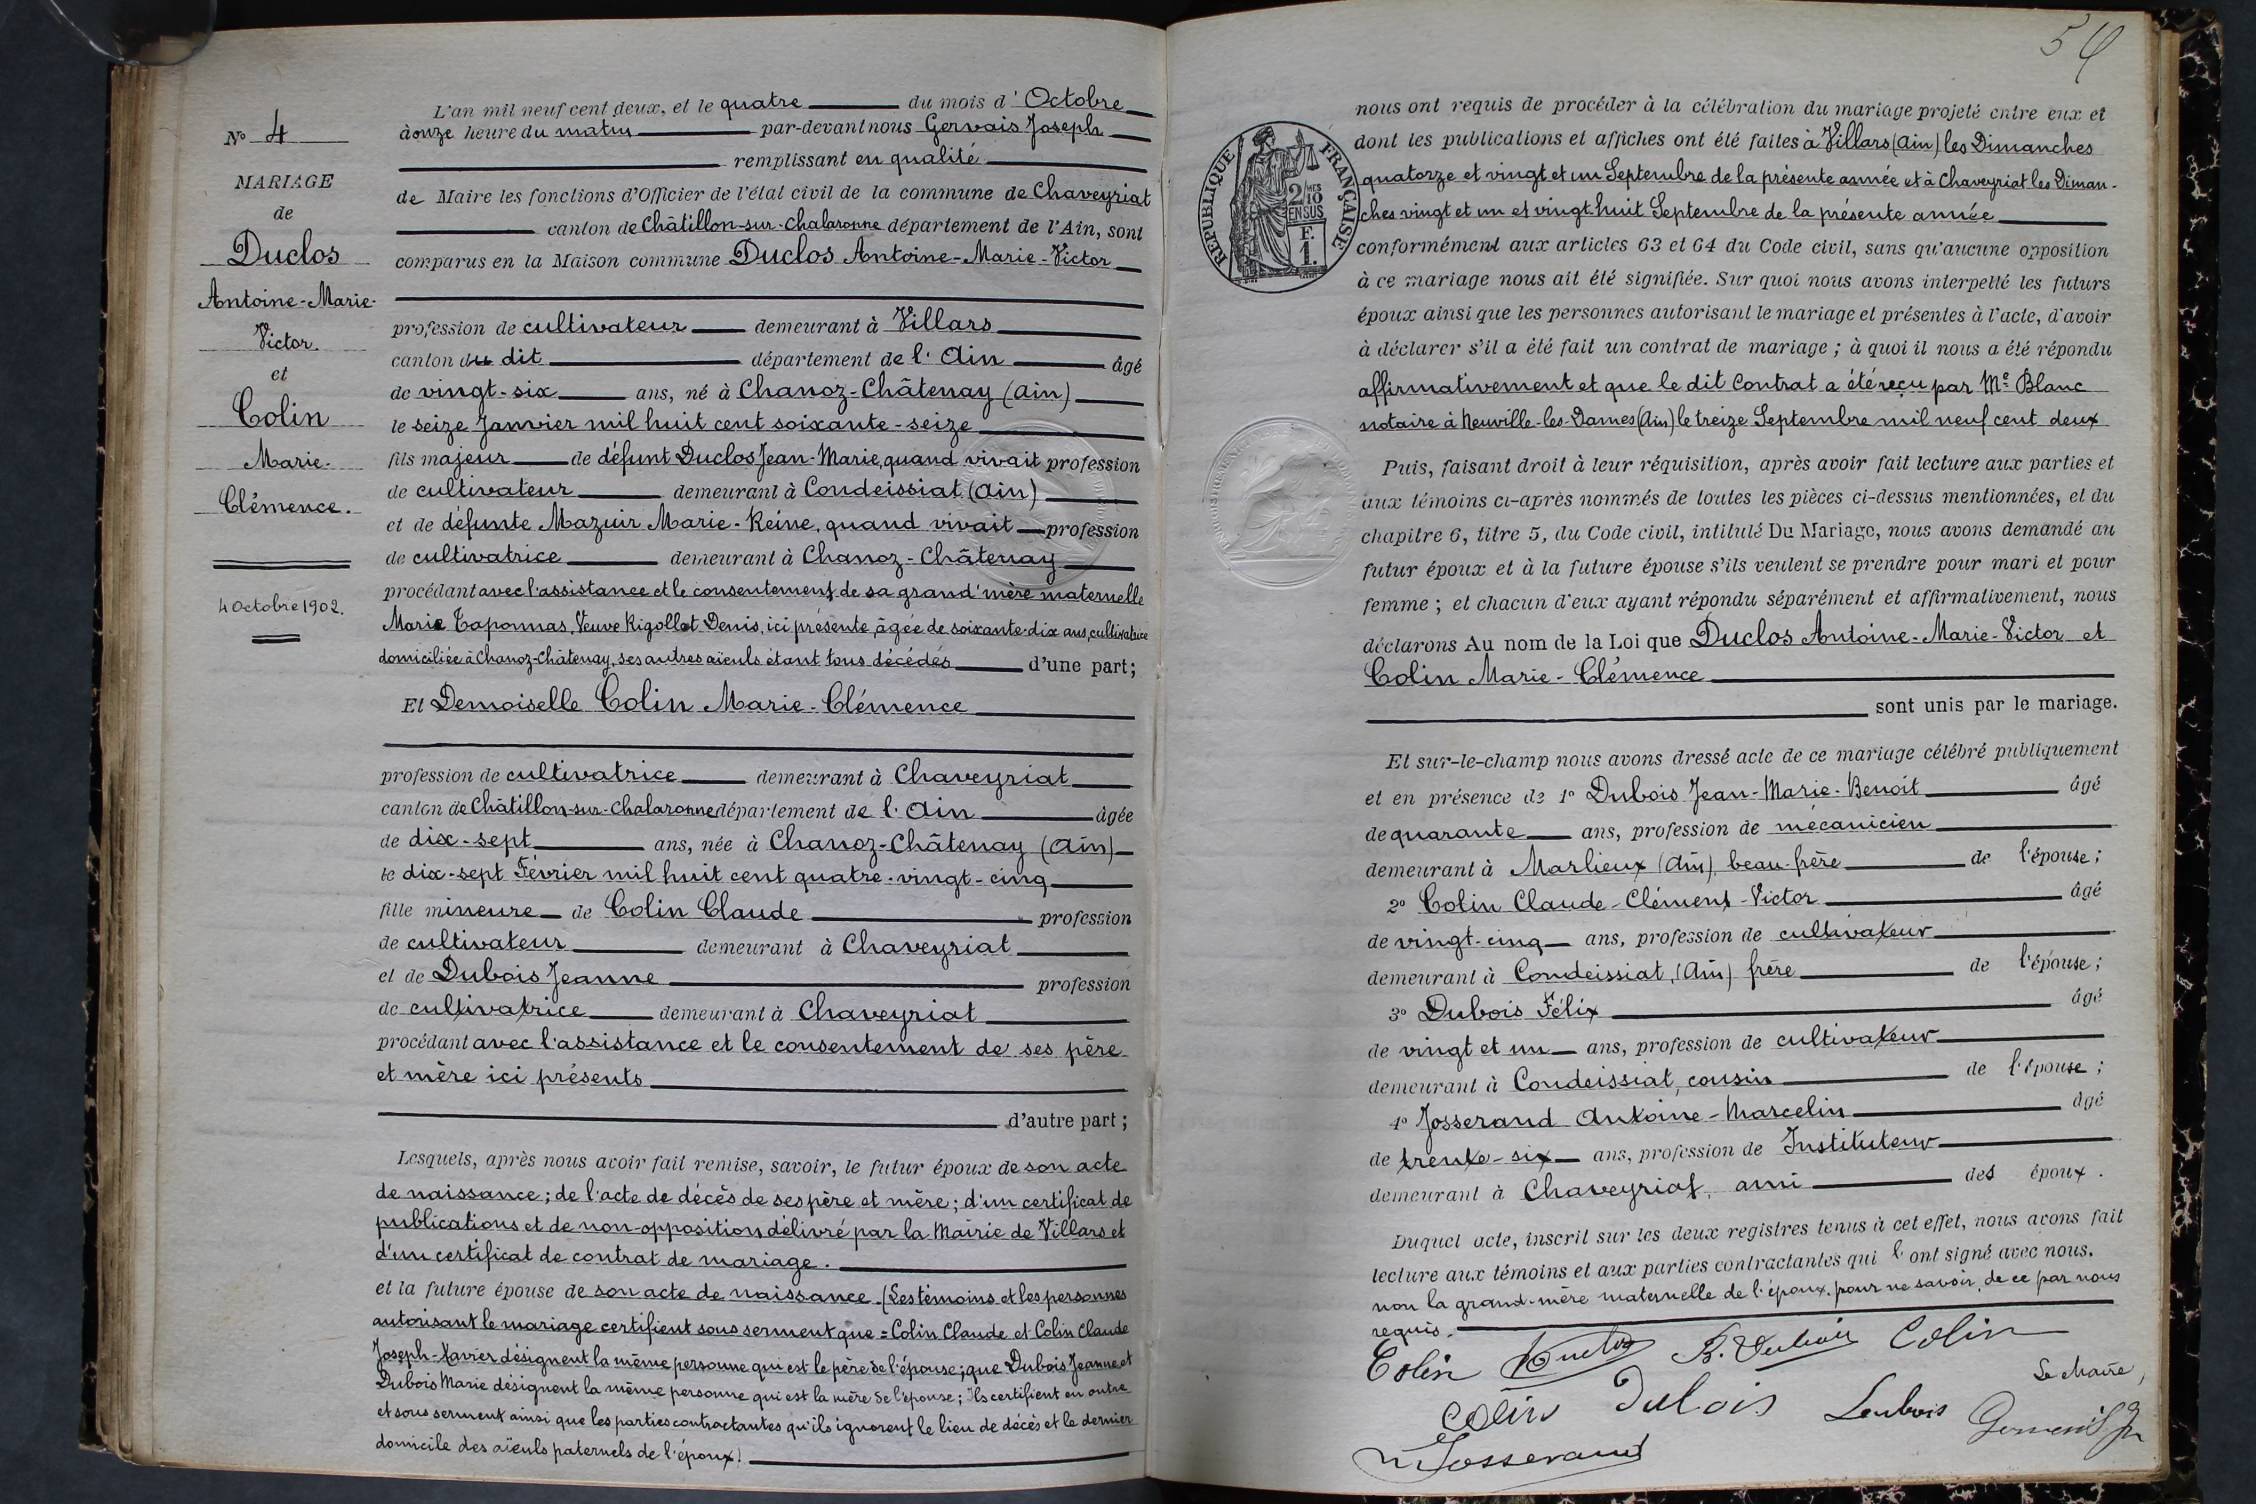 N° 4
MARIAGE
de
Duclos
Antoine-Marie-
Victor.
et
Colin
Marie-
Clémence.
4 Octobre 1902.
L'an mil neuf cent deux, et le quatre du mois d'Octobre
à onze heure du matin par-devant nous Gervais Joseph
remplissant en qualité
de Maire les fonctions d'Officier de l'état civil de la commune de Chaveyriat
canton de Châtillon-sur-Chalaronne département de l'Ain, sont
comparus en la Maison commune Duclos Antoine-Marie-Victor
profession de cultivateur demeurant à Villars
canton du dit département de l'Ain âgé
de vingt-six ans, né à Chanoz-Châtenay (Ain)
le seize Janvier mil huit cent soixante-seize
fils majeur de défunt Duclos Jean-Marie, quand vivait profession
de cultivateur demeurant à Condeissiat (Ain)
et de défunte Mazuir Marie-Reine, quand vivait profession
de cultivatrice demeurant à Chanoz-Châtenay
procédant avec l'assistance et le consentement de sa grand'mère maternelle
Marie Taponnas, Veuve Rigollet Denis, ici présente, âgée de soixante-dix ans, cultivatrice
domiciliée à Chanoz-Châtenay, ses autres aïeuls étant tous décédés d'une part;
Et Demoiselle Colin Marie-Clémence
profession de cultivatrice demeurant à Chaveyriat
canton de Châtillon-sur-Chalaronne département de l'Ain âgée
de dix-sept ans, née à Chanoz-Châtenay (Ain)
le dix-sept Février mil huit cent quatre-vingt-cinq
fille mineure de Colin Claude profession
de cultivateur demeurant à Chaveyriat
et de Dubois Jeanne profession
de cultivatrice demeurant à Chaveyriat
procédant avec l'assistance et le consentement de ses père
et mère ici présents
d'autre part;
Lesquels, après nous avoir fait remise, savoir, le futur époux de son acte
de naissance; de l'acte de décès de ses père et mère; d'un certificat de
publications et de non-opposition délivré par la Mairie de Villars et
d'un certificat de contrat de mariage.
et la future épouse de son acte de naissance. (Les témoins et les personnes
autorisant le mariage certifient sous serment que = Colin Claude et Colin Claude
Joseph-Xavier désignent la même personne qui est le père de l'épouse; que Dubois Jeanne et
Dubois Marie désignent la même personne qui est la mère de l'épouse; Ils certifient en outre
et sous serment ainsi que les parties contractantes qu'ils ignorent le lieu de décès et le dernier
domicile des aïeuls paternels de l'époux)
54
RÉPUBLIQUE FRANÇAISE
2/10 MES
EN SUS
F.
1.
nous ont requis de procéder à la célébration du mariage projeté entre eux et
dont les publications et affiches ont été faites à Villars (Ain) les Dimanches
quatorze et vingt et un Septembre de la présente année et à Chaveyriat les Diman-
ches vingt et un et vingt-huit Septembre de la présente année
conformément aux articles 63 et 64 du Code civil, sans qu'aucune opposition
à ce mariage nous ait été signifiée. Sur quoi nous avons interpellé les futurs
époux ainsi que les personnes autorisant le mariage et présentes à l'acte, d'avoir
à déclarer s'il a été fait un contrat de mariage; à quoi il nous a été répondu
affirmativement et que le dit Contrat a été reçu par Me Blanc
notaire à Neuville-les-Dames (Ain) le treize Septembre mil neuf cent deux
Puis, faisant droit à leur réquisition, après avoir fait lecture aux parties et
aux témoins ci-après nommés de toutes les pièces ci-dessus mentionnées, et du
chapitre 6, titre 5, du Code civil, intitulé Du Mariage, nous avons demandé au
futur époux et à la future épouse s'ils veulent se prendre pour mari et pour
femme; et chacun d'eux ayant répondu séparément et affirmativement, nous
déclarons Au nom de la Loi que Duclos Antoine-Marie-Victor et
Colin Marie-Clémence
sont unis par le mariage.
Et sur-le-champ nous avons dressé acte de ce mariage célébré publiquement
et en présence de 1° Dubois Jean-Marie-Benoît âgé
de quarante ans, profession de mécanicien
demeurant à Marlieux (Ain) beau-frère de l'épouse;
2° Colin Claude-Clément-Victor âgé
de vingt-cinq ans, profession de cultivateur
demeurant à Condeissiat, (Ain) frère de l'épouse;
3° Dubois Félix âgé
de vingt et un ans, profession de cultivateur
demeurant à Condeissiat, cousin de l'épouse;
4° Josserand Antoine-Marcelin âgé
de trente-six ans, profession de Instituteur
demeurant à Chaveyriat, ami des époux.
Duquel acte, inscrit sur les deux registres tenus à cet effet, nous avons fait
lecture aux témoins et aux parties contractantes qui l'ont signé avec nous.
non la grand-mère maternelle de l'époux, pour ne savoir, de ce par nous
requis.
Colin Duclos B. Dubois Colin
Le Maire,
Colin Dubois Dubois Gervais J
Josserand